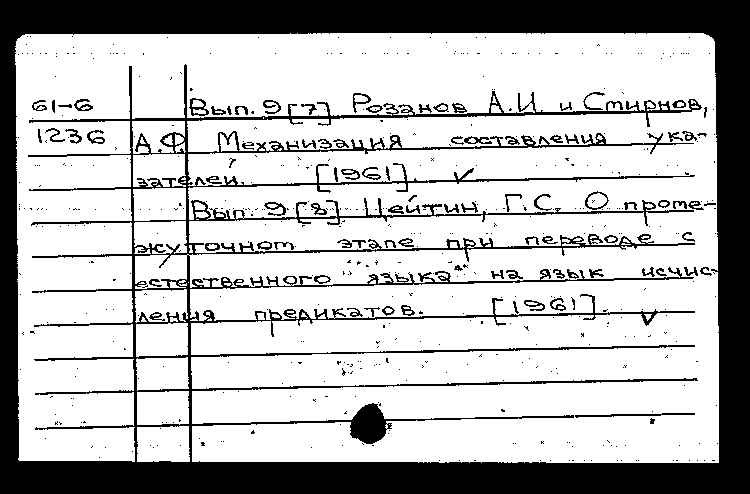 61-6 Вып. 9 [7] Розанов А.И. и Смирнов,
1236 А.Ф. Механизация составления ука-
зателей. [1961]. ✓
Вып. 9 [8] Цейтин, Г.С. О проме-
жуточном этапе при переводе с
естественного "языка" на язык исчис-
ления предикатов. [1961]. ✓